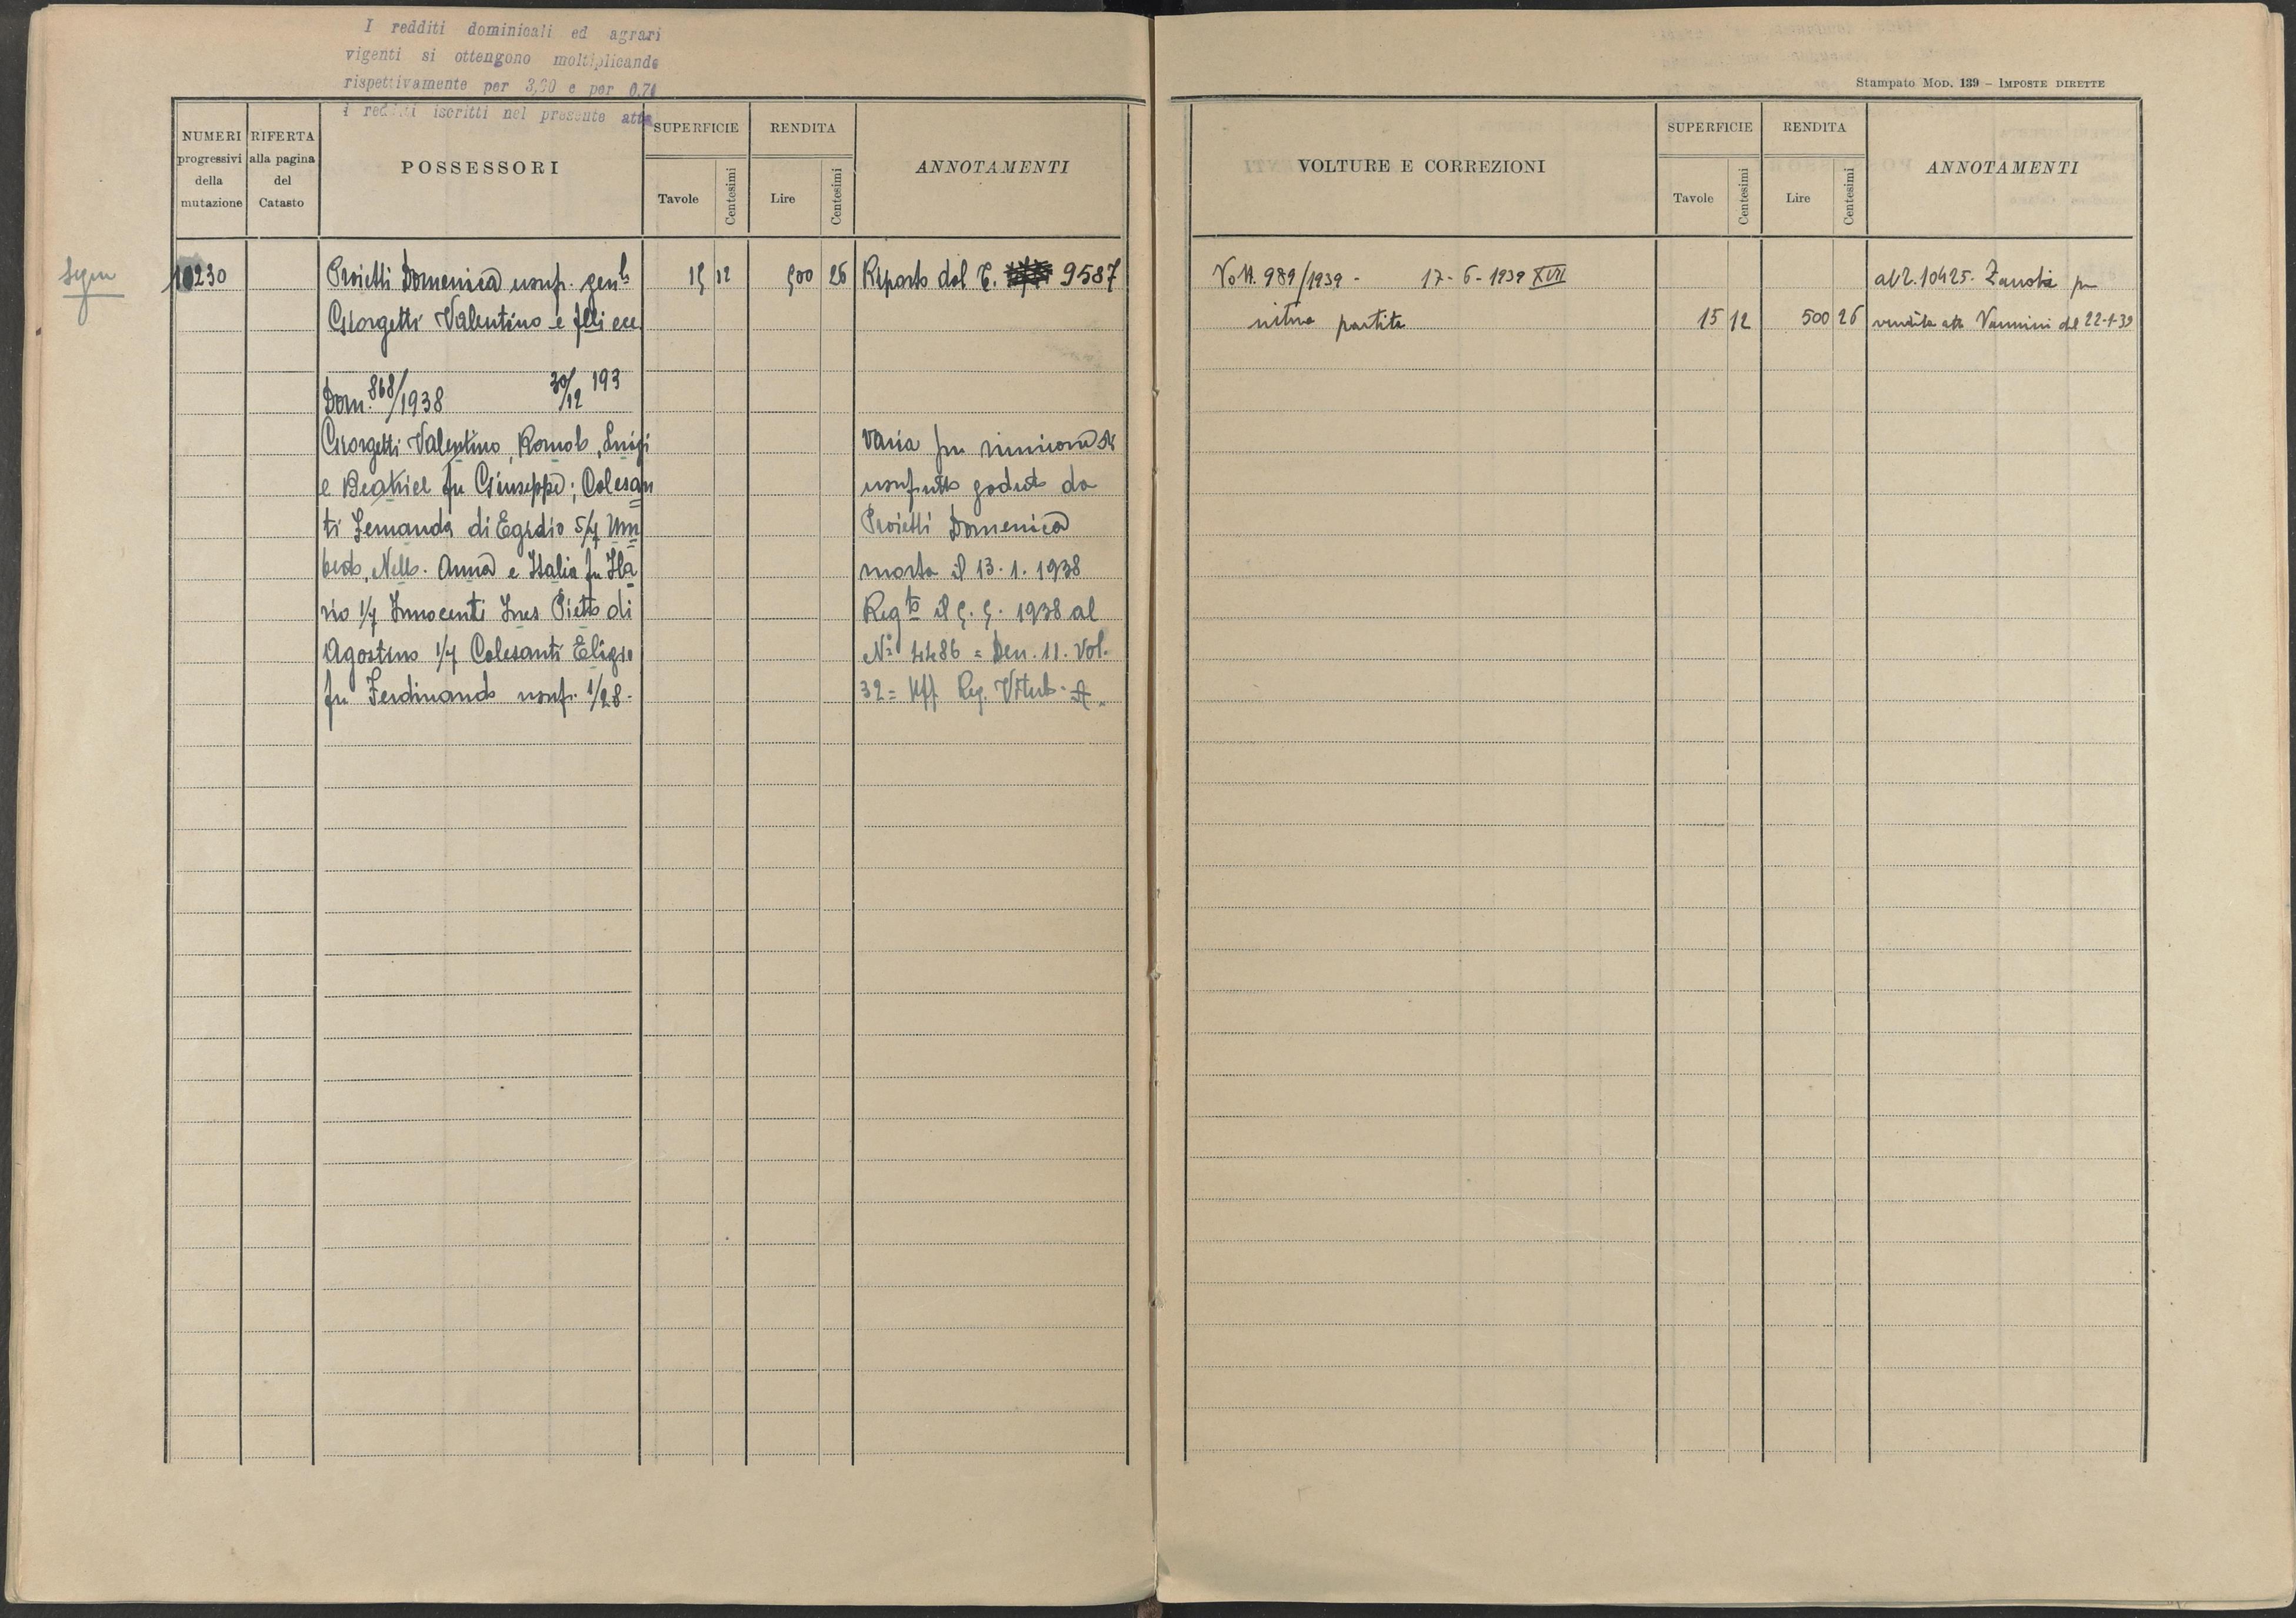 I redditi dominicali ed agrari
vigenti si ottengono moltiplicando
rispettivamente per 3,60 e per 0,74
i redditi iscritti nel presente atto
Stampato Mod. 139 – Imposte dirette
NUMERI progressivi della mutazione
RIFERTA alla pagina del Catasto
POSSESSORI
SUPERFICIE
Tavole
Centesimi
RENDITA
Lire
Centesimi
ANNOTAMENTI
VOLTURE E CORREZIONI
SUPERFICIE
Tavole
Centesimi
RENDITA
Lire
Centesimi
ANNOTAMENTI
10230
Proietti Domenica usuf. gen.le 15 12 500 26 Riporto dal C. 9587
Giorgetti Valentino e flli ecc
Dom. 868/1938 30/12 193
Giorgetti Valentino, Romolo, Luigi
e Beatrice fu Giuseppe; Colesan
ti Fernanda di Egidio 5/7 Um
berto, Nello. Anna e Italia fu Ila
rio 1/7 Innocenti Ines Pietto di
Agostino 1/7 Colesanti Eligio
fu Ferdinando usuf. 1/28.
Varia per riunione di
usufrutto goduto da
Proietti Domenica
morta il 13.1.1938
Reg.to il 5.5.1938 al
N° 4486 = Den. 11. Vol.
32 = Uff Reg. Viterbo.
Volt. 989/1939 - 17-6-1939 XVII al 2. 10425. per
intera partita 15 12 500 26 vendita atto Vannini del 22-1-39